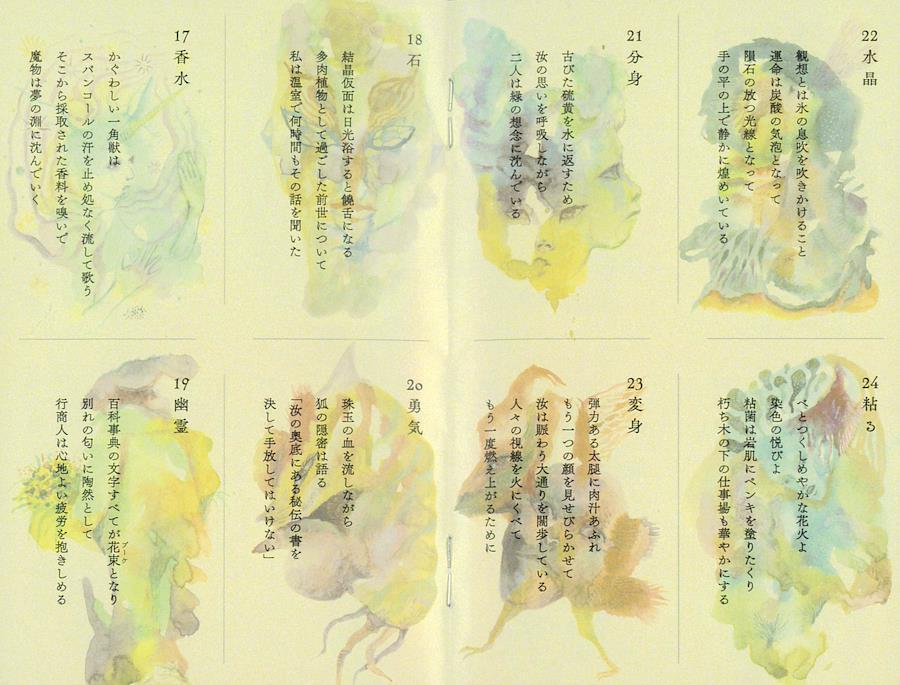 17 香水
かぐわしい一角獣は
スパンコールの汗を止め処なく流して歌う
そこから採取された香料を嗅いで
魔物は夢の淵に沈んでいく
18 石
結晶仮面は日光浴すると饒舌になる
多肉植物として過ごした前世について
私は温室で何時間もその話を聞いた
19 幽霊
百科事典の文字すべてが花束となり
ブーケ
別れの匂いに陶然として
行商人は心地よい疲労を抱きしめる
20 勇気
珠玉の血を流しながら
狐の隠密は語る
「汝の奥底にある秘伝の書を
決して手放してはいけない」
21 分身
古びた硫黄を水に返すため
汝の思いを呼吸しながら
二人は緑の想念に沈んでいる
22 水晶
観想とは氷の息吹を吹きかけること
運命は炭酸の気泡となって
隕石の放つ光線となって
手の平の上で静かに煌めいている
23 変身
弾力ある太腿に肉汁あふれ
もう一つの顔を見せびらかせて
汝は賑わう大通りを闊歩している
人々の視線を火にくべて
もう一度燃え上がるために
24 粘る
べとつくしめやかな花火よ
染色の悦びよ
粘菌は岩肌にペンキを塗りたくり
朽ち木の下の仕事場も華やかにする